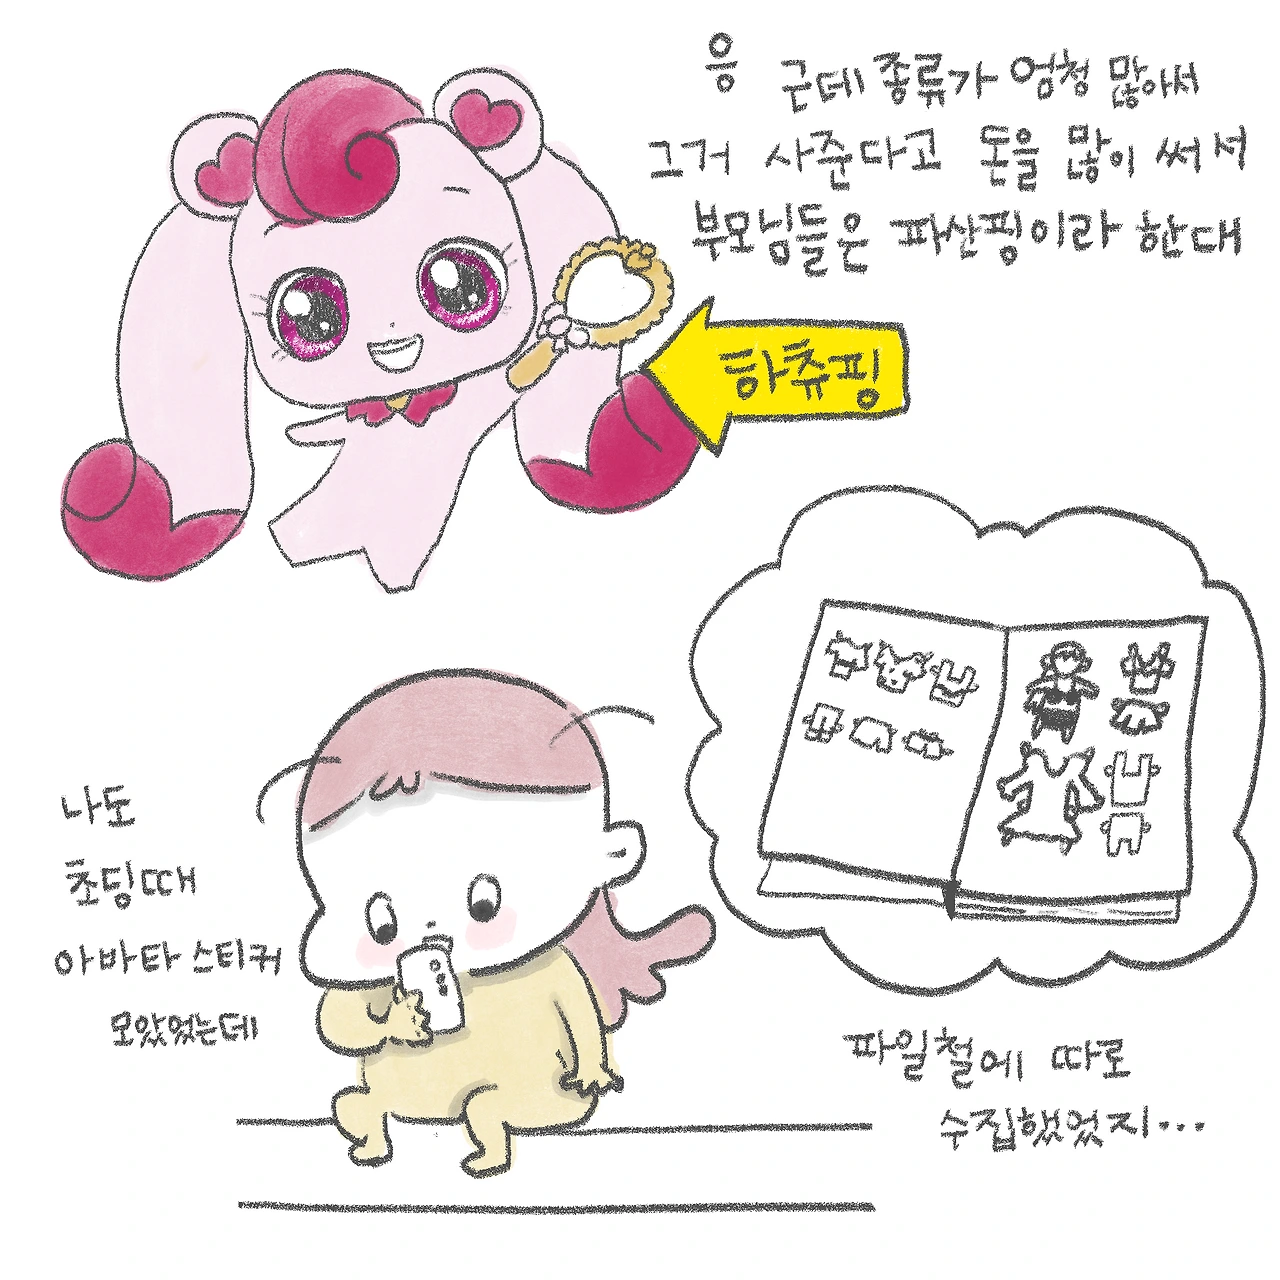 응 근데 종류가 엄청 많아서
그거 사준다고 돈을 많이 써서
부모님들은 파산핑이라 한대
하츄핑
나도
초딩때
아바타 스티커
모았었는데
파일철에 따로
수집했었지...